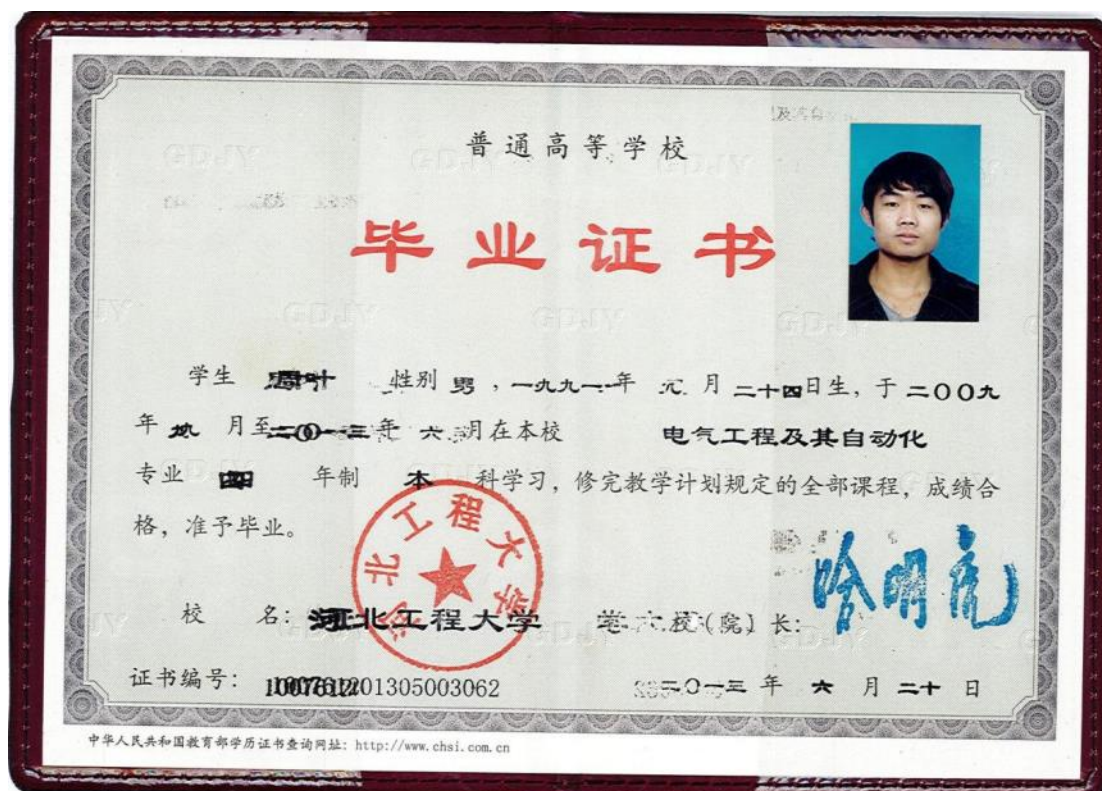 普通高等学校
毕业证书
学生 性别 男，一九九一年 元 月 二十四日生，于 二〇〇九
年 九 月至二〇一三年 六 月在本校 电气工程及其自动化
专业 四 年制 本 科学习，修完教学计划规定的全部课程，成绩合
格，准予毕业。
河北工程大学
校 名：河北工程大学 校（院）长：哈明虎
证书编号： 201305003062 二〇一三 年 六 月 二十 日
中华人民共和国教育部学历证书查询网址：http://www.chsi.com.cn